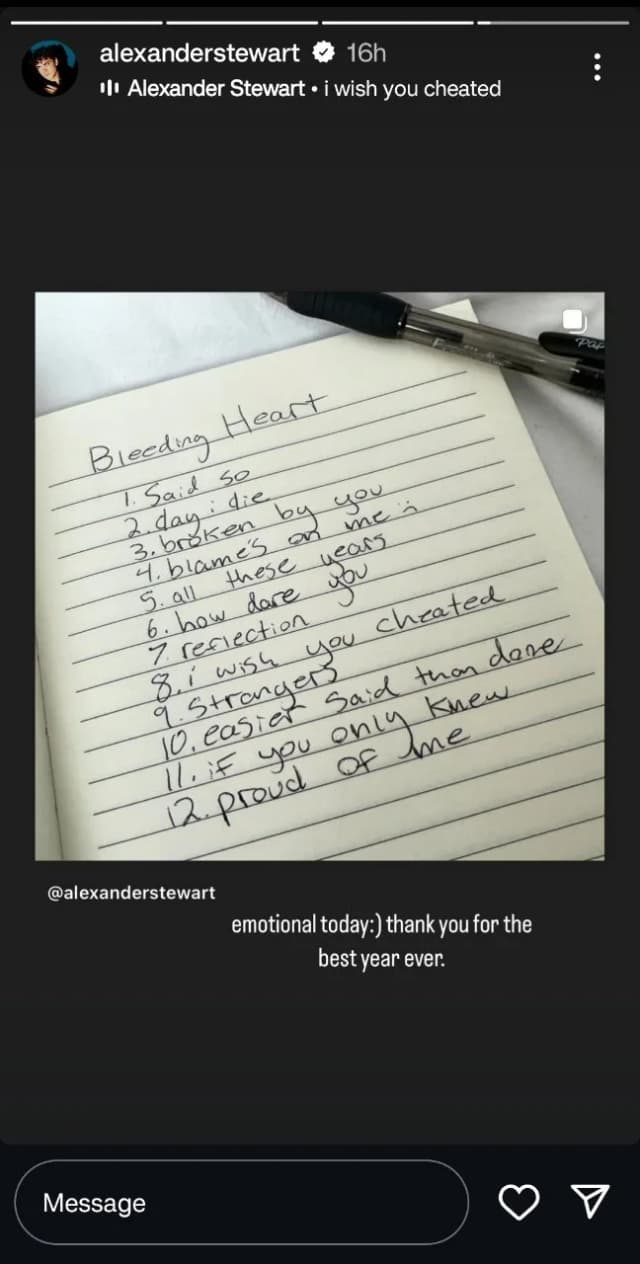 alexanderstewart 16h
Alexander Stewart • i wish you cheated
Bleeding Heart
1. Said so
2. day i die
3. broken by you
4. blame's on me :
5. all these years
6. how dare you
7. reflection
8. i wish you cheated
9. Strangers
10. easier said than done
11. if you only knew
12. proud of me
@alexanderstewart
emotional today:) thank you for the
best year ever.
Message